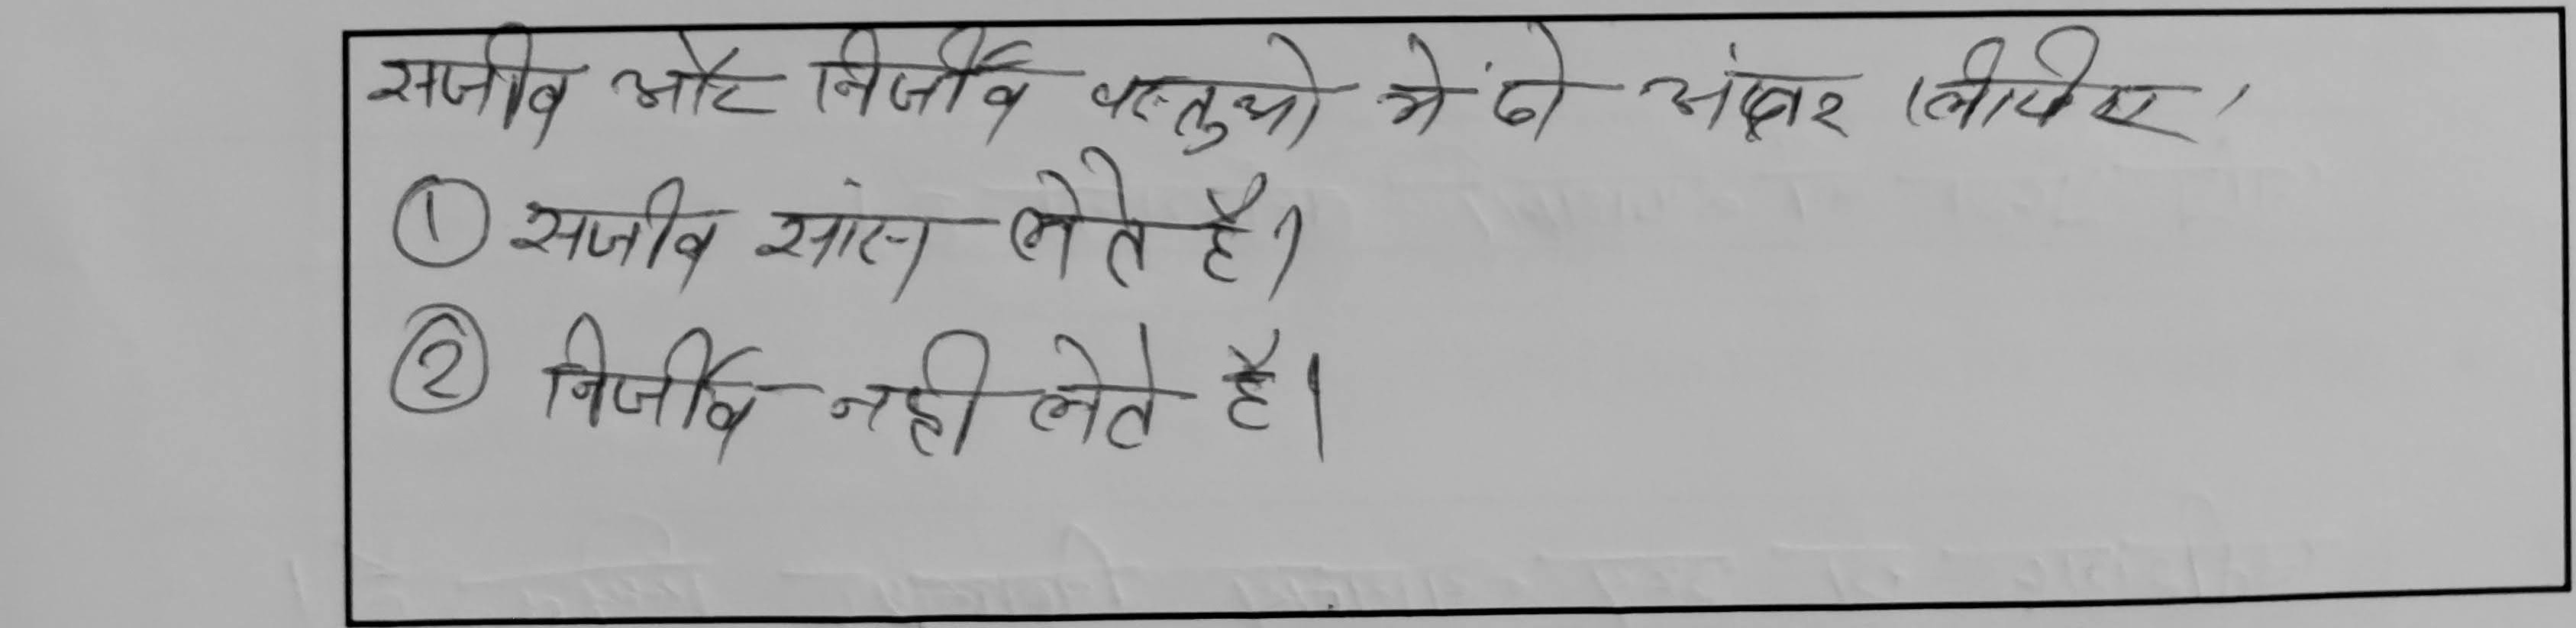 सजीव और निर्जीव वस्तुओ में दो अंतर लीखिए।
① सजीव सांस लेते है।
② निर्जीव नही लेते है।